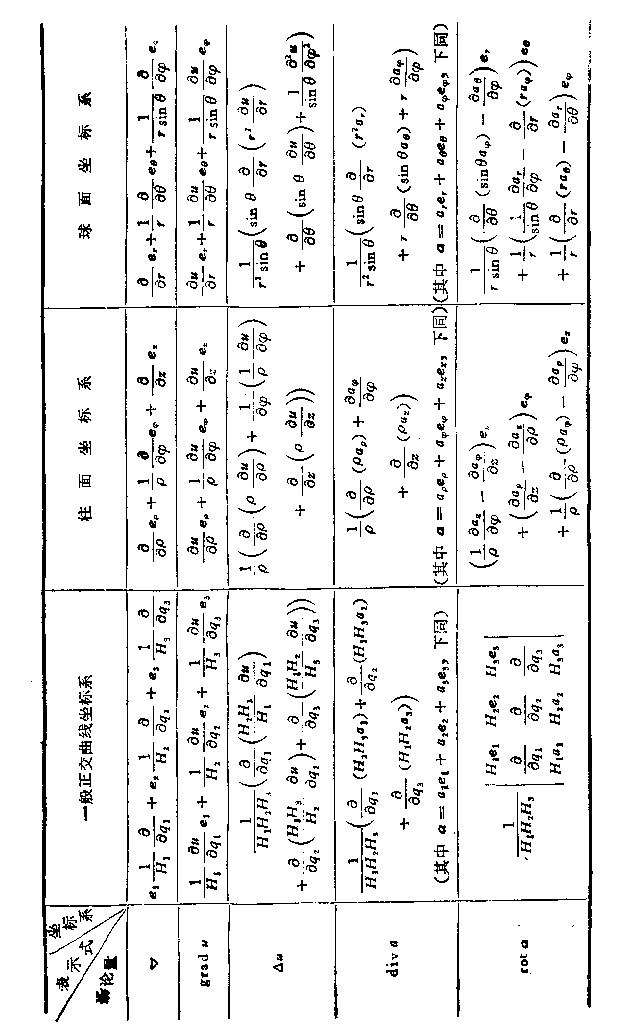 表示式 坐标系
场论量
一般正交曲线坐标系
柱面坐标系
球面坐标系
∇
e₁ 1/H₁ ∂/∂q₁ + e₂ 1/H₂ ∂/∂q₂ + e₃ 1/H₃ ∂/∂q₃
∂/∂ρ e_ρ + 1/ρ ∂/∂φ e_φ + ∂/∂z e_z
∂/∂r e_r + 1/r ∂/∂θ e_θ + 1/(r sin θ) ∂/∂φ e_φ
grad u
1/H₁ ∂u/∂q₁ e₁ + 1/H₂ ∂u/∂q₂ e₂ + 1/H₃ ∂u/∂q₃ e₃
∂u/∂ρ e_ρ + 1/ρ ∂u/∂φ e_φ + ∂u/∂z e_z
∂u/∂r e_r + 1/r ∂u/∂θ e_θ + 1/(r sin θ) ∂u/∂φ e_φ
Δu
1/(H₁H₂H₃) (∂/∂q₁ (H₂H₃/H₁ ∂u/∂q₁)
+ ∂/∂q₂ (H₁H₃/H₂ ∂u/∂q₂) + ∂/∂q₃ (H₁H₂/H₃ ∂u/∂q₃))
1/ρ (∂/∂ρ (ρ ∂u/∂ρ) + ∂/∂φ (1/ρ ∂u/∂φ)
+ ∂/∂z (ρ ∂u/∂z))
1/(r² sin θ) (sin θ ∂/∂r (r² ∂u/∂r)
+ ∂/∂θ (sin θ ∂u/∂θ) + 1/sin θ ∂²u/∂φ²)
div a
1/(H₁H₂H₃) (∂/∂q₁ (H₂H₃a₁) + ∂/∂q₂ (H₁H₃a₂)
+ ∂/∂q₃ (H₁H₂a₃))
(其中 a = a₁e₁ + a₂e₂ + a₃e₃, 下同)
1/ρ (∂/∂ρ (ρa_ρ) + ∂a_φ/∂φ
+ ∂/∂z (ρa_z))
(其中 a = a_ρe_ρ + a_φe_φ + a_ze_z, 下同)
1/(r² sin θ) (sin θ ∂/∂r (r²a_r)
+ r ∂/∂θ (sin θa_θ) + r ∂a_φ/∂φ)
(其中 a = a_re_r + a_θe_θ + a_φe_φ, 下同)
rot a
1/(H₁H₂H₃) | H₁e₁ H₂e₂ H₃e₃
∂/∂q₁ ∂/∂q₂ ∂/∂q₃
H₁a₁ H₂a₂ H₃a₃ |
(1/ρ ∂a_z/∂φ − ∂a_φ/∂z) e_ρ
+ (∂a_ρ/∂z − ∂a_z/∂ρ) e_φ
+ 1/ρ (∂/∂ρ (ρa_φ) − ∂a_ρ/∂φ) e_z
1/(r sin θ) (∂/∂θ (sin θa_φ) − ∂a_θ/∂φ) e_r
+ 1/r (1/sin θ ∂a_r/∂φ − ∂/∂r (ra_φ)) e_θ
+ 1/r (∂/∂r (ra_θ) − ∂a_r/∂θ) e_φ